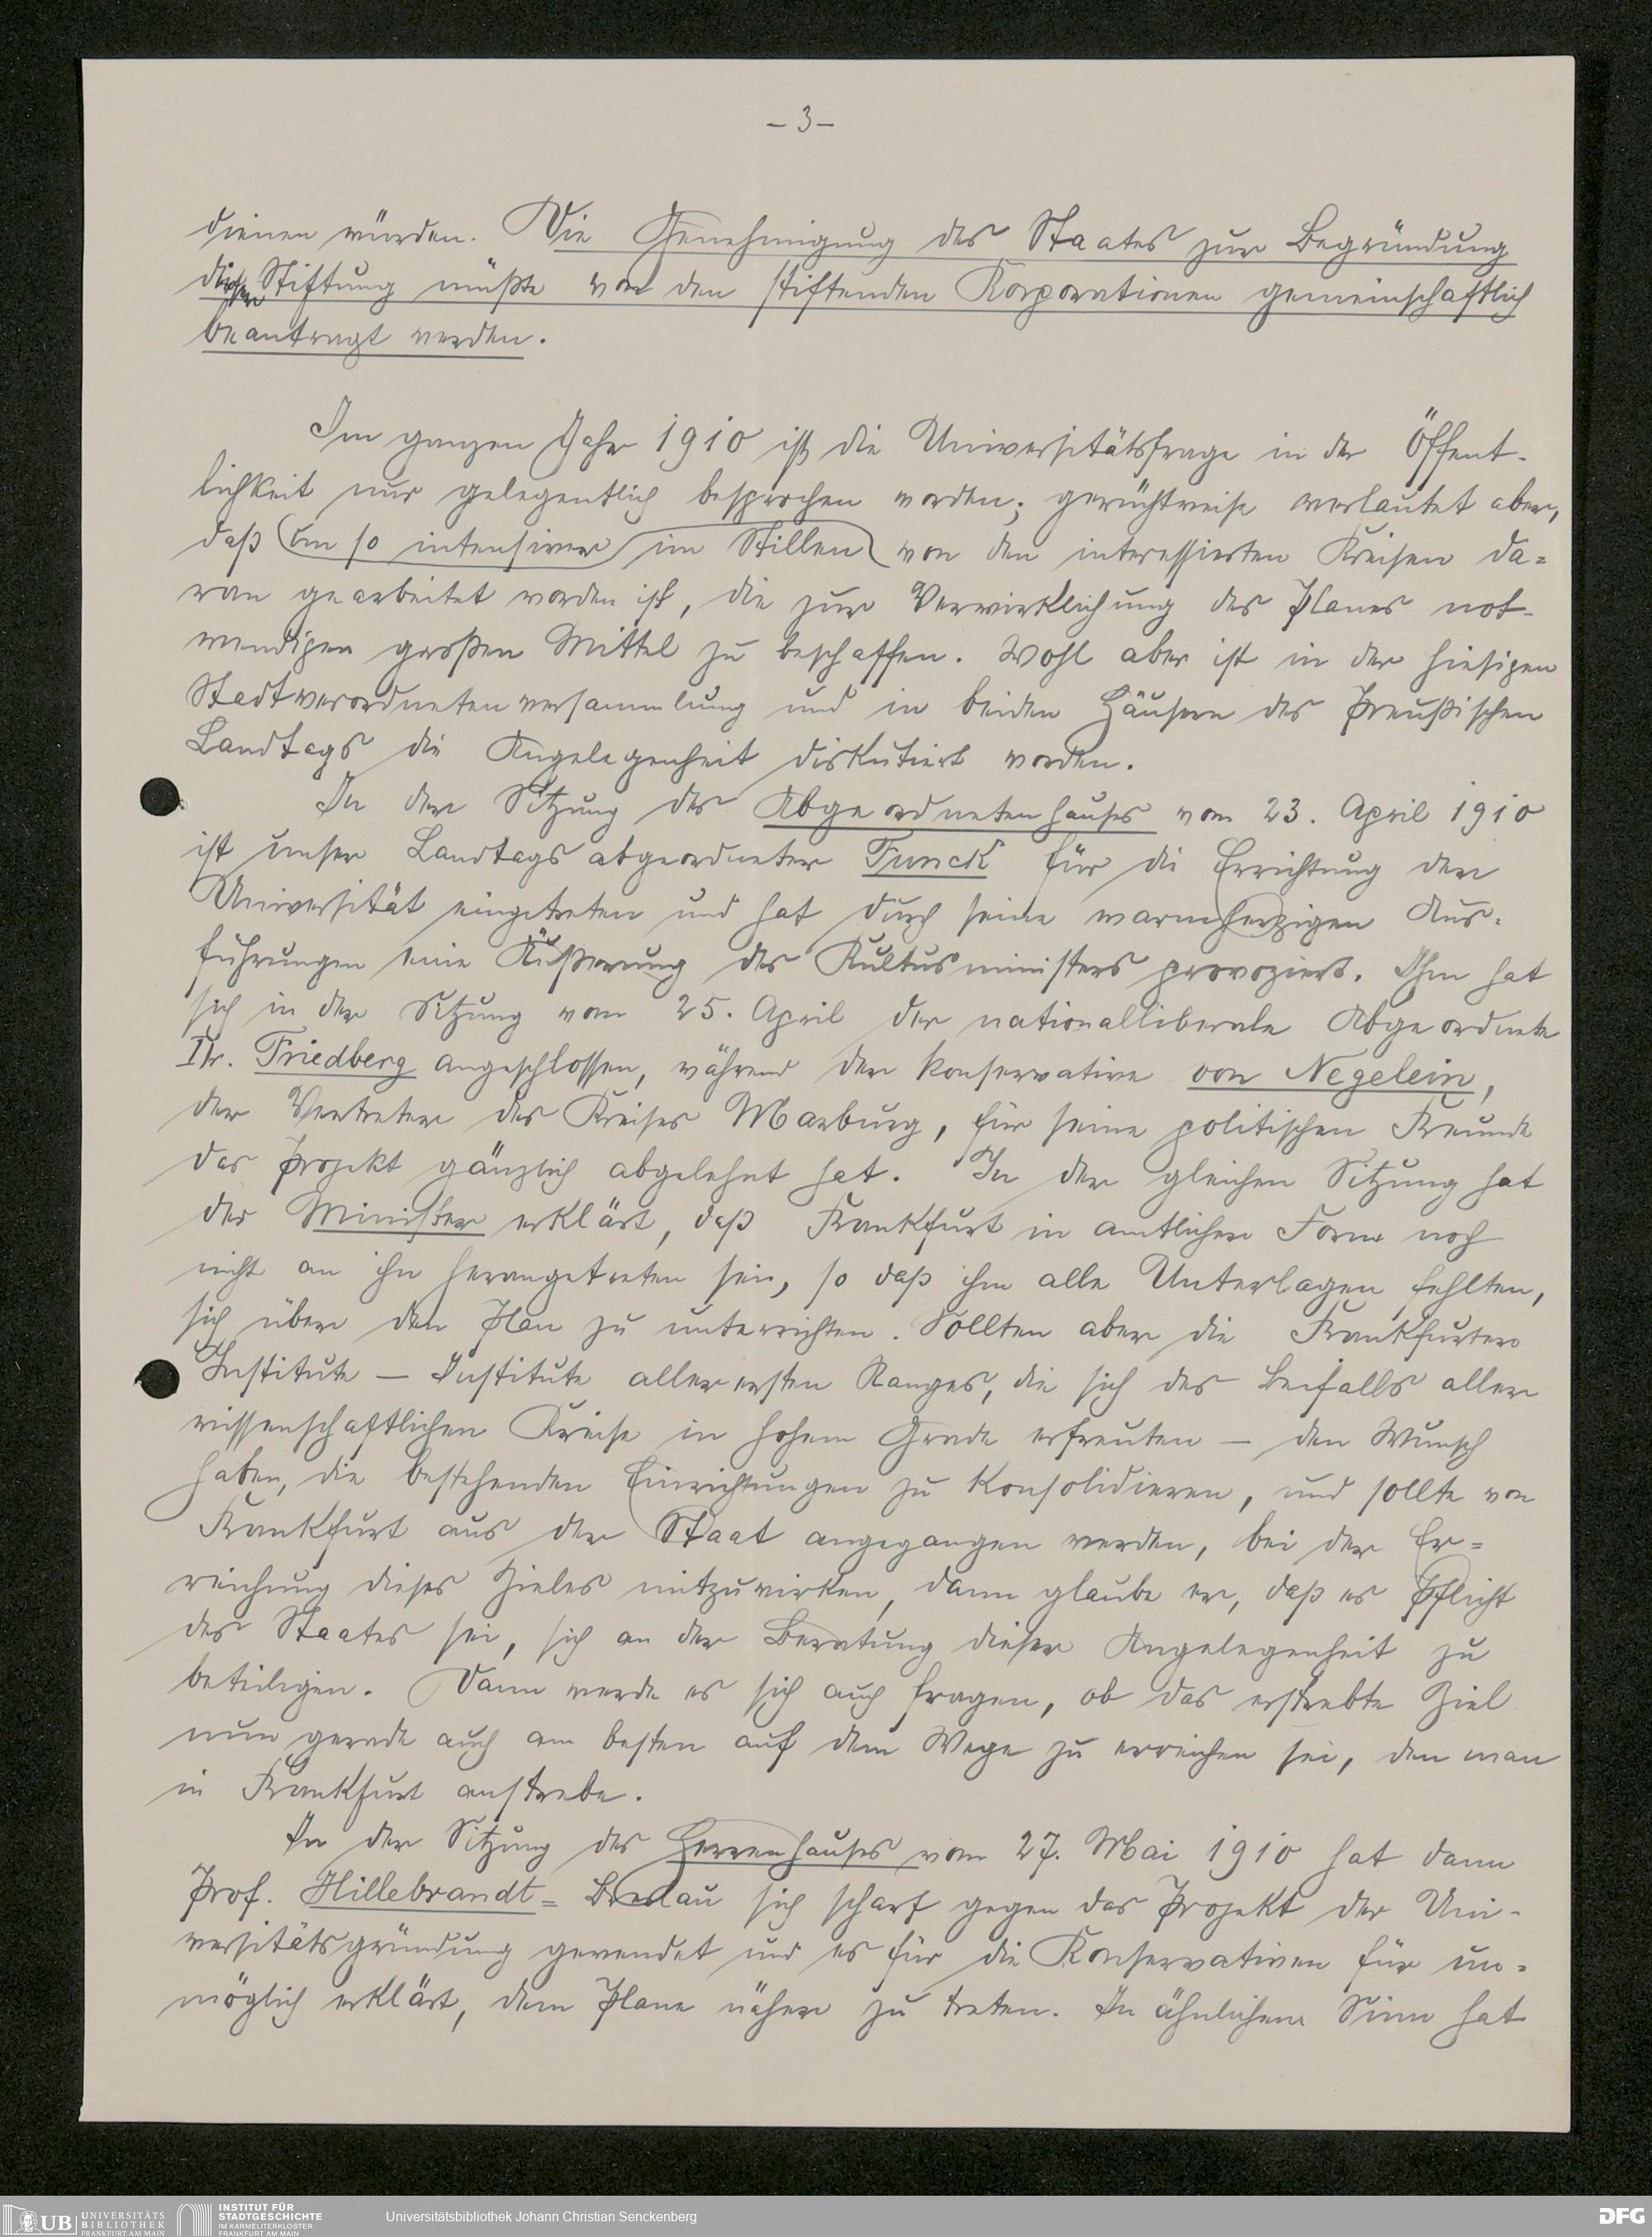 – 3 –
dienen würden. Die Genehmigung des Staates zur Begründung
dieser Stiftung müßte von den stiftenden Korporationen gemeinschaftlich
beantragt werden.
Im ganzen Jahr 1910 ist die Universitätsfrage in der Öffent-
lichkeit nur gelegentlich besprochen worden; gerüchtweise verlautet aber,
daß um so intensiver im Stillen von den interessierten Kreisen da=
ran gearbeitet worden ist, die zur Verwirklichung des Planes not-
wendigen großen Mittel zu beschaffen. Wohl aber ist in der hiesigen
Stadtverordnetenversammlung und in beiden Häusern des Preußischen
Landtags die Angelegenheit diskutiert worden.
In der Sitzung des Abgeordnetenhauses vom 23. April 1910
ist unser Landtagsabgeordneter Funck für die Errichtung der
Universität eingetreten und hat durch seine warmherzigen Aus=
führungen eine Äußerung des Kultusministers provoziert. Ihm hat
sich in der Sitzung vom 25. April der nationalliberale Abgeordnete
Dr. Friedberg angeschlossen, während der konservative von Negelein,
der Vertreter des Kreises Marburg, für seine politischen Freunde
das Projekt gänzlich abgelehnt hat. In der gleichen Sitzung hat
der Minister erklärt, daß Frankfurt in amtlicher Form noch
nicht an ihn herangetreten sei, so daß ihm alle Unterlagen fehlten,
sich über den Plan zu unterrichten. Sollten aber die Frankfurter
Institute – Institute allerersten Ranges, die sich des Beifalls aller
wissenschaftlichen Kreise in hohem Grade erfreuten – den Wunsch
haben, die bestehenden Einrichtungen zu konsolidieren, und sollte von
Frankfurt aus der Staat angegangen werden, bei der Er=
reichung dieses Zieles mitzuwirken, dann glaube er, daß es Pflicht
des Staates sei, sich an der Beratung dieser Angelegenheit zu
beteiligen. Dann werde es sich auch fragen, ob das erstrebte Ziel
nun gerade auch am besten auf dem Wege zu erreichen sei, den man
in Frankfurt anstrebe.
In der Sitzung des Herrenhauses vom 27. Mai 1910 hat dann
Prof. Hillebrandt= Breslau sich scharf gegen das Projekt der Uni-
versitätsgründung gewendet und es für die Konservativen für un=
möglich erklärt, dem Plane näher zu treten. In ähnlichem Sinn hat
UB UNIVERSITÄTS BIBLIOTHEK FRANKFURT AM MAIN
INSTITUT FÜR STADTGESCHICHTE IM KARMELITERKLOSTER FRANKFURT AM MAIN
Universitätsbibliothek Johann Christian Senckenberg
DFG